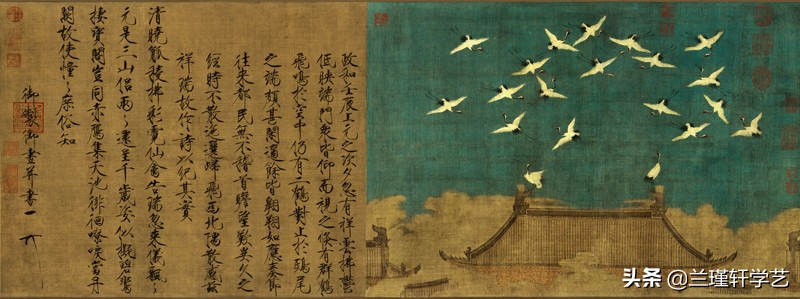 政和壬辰上元之次夕忽有祥雲拂鬱
低映端門衆皆仰而視之倏有群鶴
飛鳴於空中仍有二鶴對止於鴟尾
之端頗甚閑適餘皆翱翔如應奏節
往來都民無不稽首瞻望歎異久之
經時不散迤邐歸飛西北隅散感茲
祥瑞故作詩以紀其實
清曉觚稜拂彩霓仙禽告瑞忽來儀飄〻
元是三山侶兩〻還呈千歲姿似擬碧鸞
棲寶閣豈同赤鴈集天池徘徊嘹唳當丹
闕故使憧〻庶俗知
御製御畫并書
头条 @兰瑾轩学艺